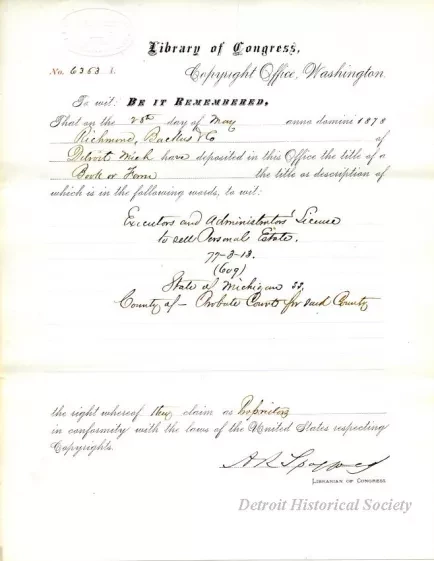 Library of Congress,
No. 6363 I. Copyright Office, Washington.
To wit: BE IT REMEMBERED,
That on the 28th day of May anno domini 1878
Richmond, Backus & Co of
Detroit Mich have deposited in this Office the title of a
Book or Form the title as description of
which is in the following words, to wit:
Executors and Administrators' License
to sell Personal Estate.
77-3-13.
(609)
State of Michigan ss.
County of — Probate Court for said County
the right whereof they claim as Proprietors
in conformity with the laws of the United States respecting
Copyrights.
A R Spofford
LIBRARIAN OF CONGRESS.
Detroit Historical Society